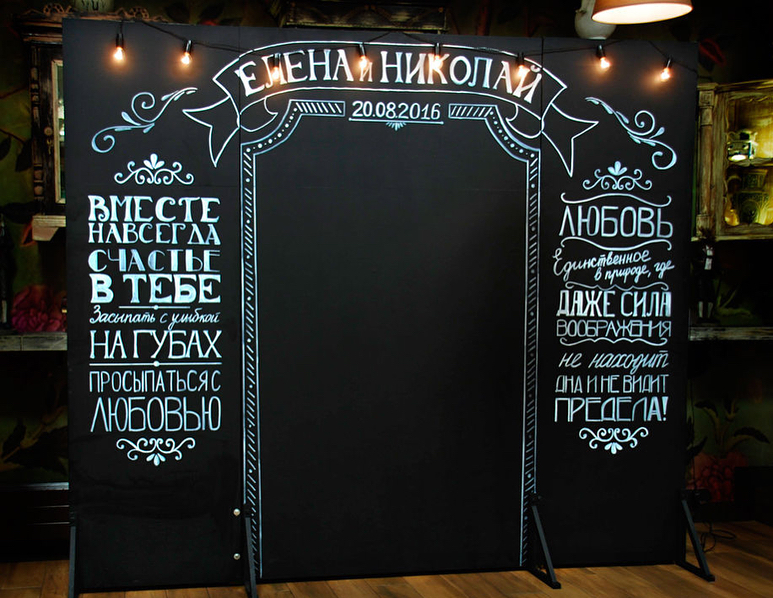 ЕЛЕНА И НИКОЛАЙ
20.08.2016
ВМЕСТЕ
НАВСЕГДА
СЧАСТЬЕ
В ТЕБЕ
Засыпать с улыбкой
НА ГУБАХ
ПРОСЫПАТЬСЯ С
ЛЮБОВЬЮ
ЛЮБОВЬ
Единственное
в природе, где
ДАЖЕ СИЛА
ВООБРАЖЕНИЯ
не находит
ДНА И НЕ ВИДИТ
ПРЕДЕЛА!